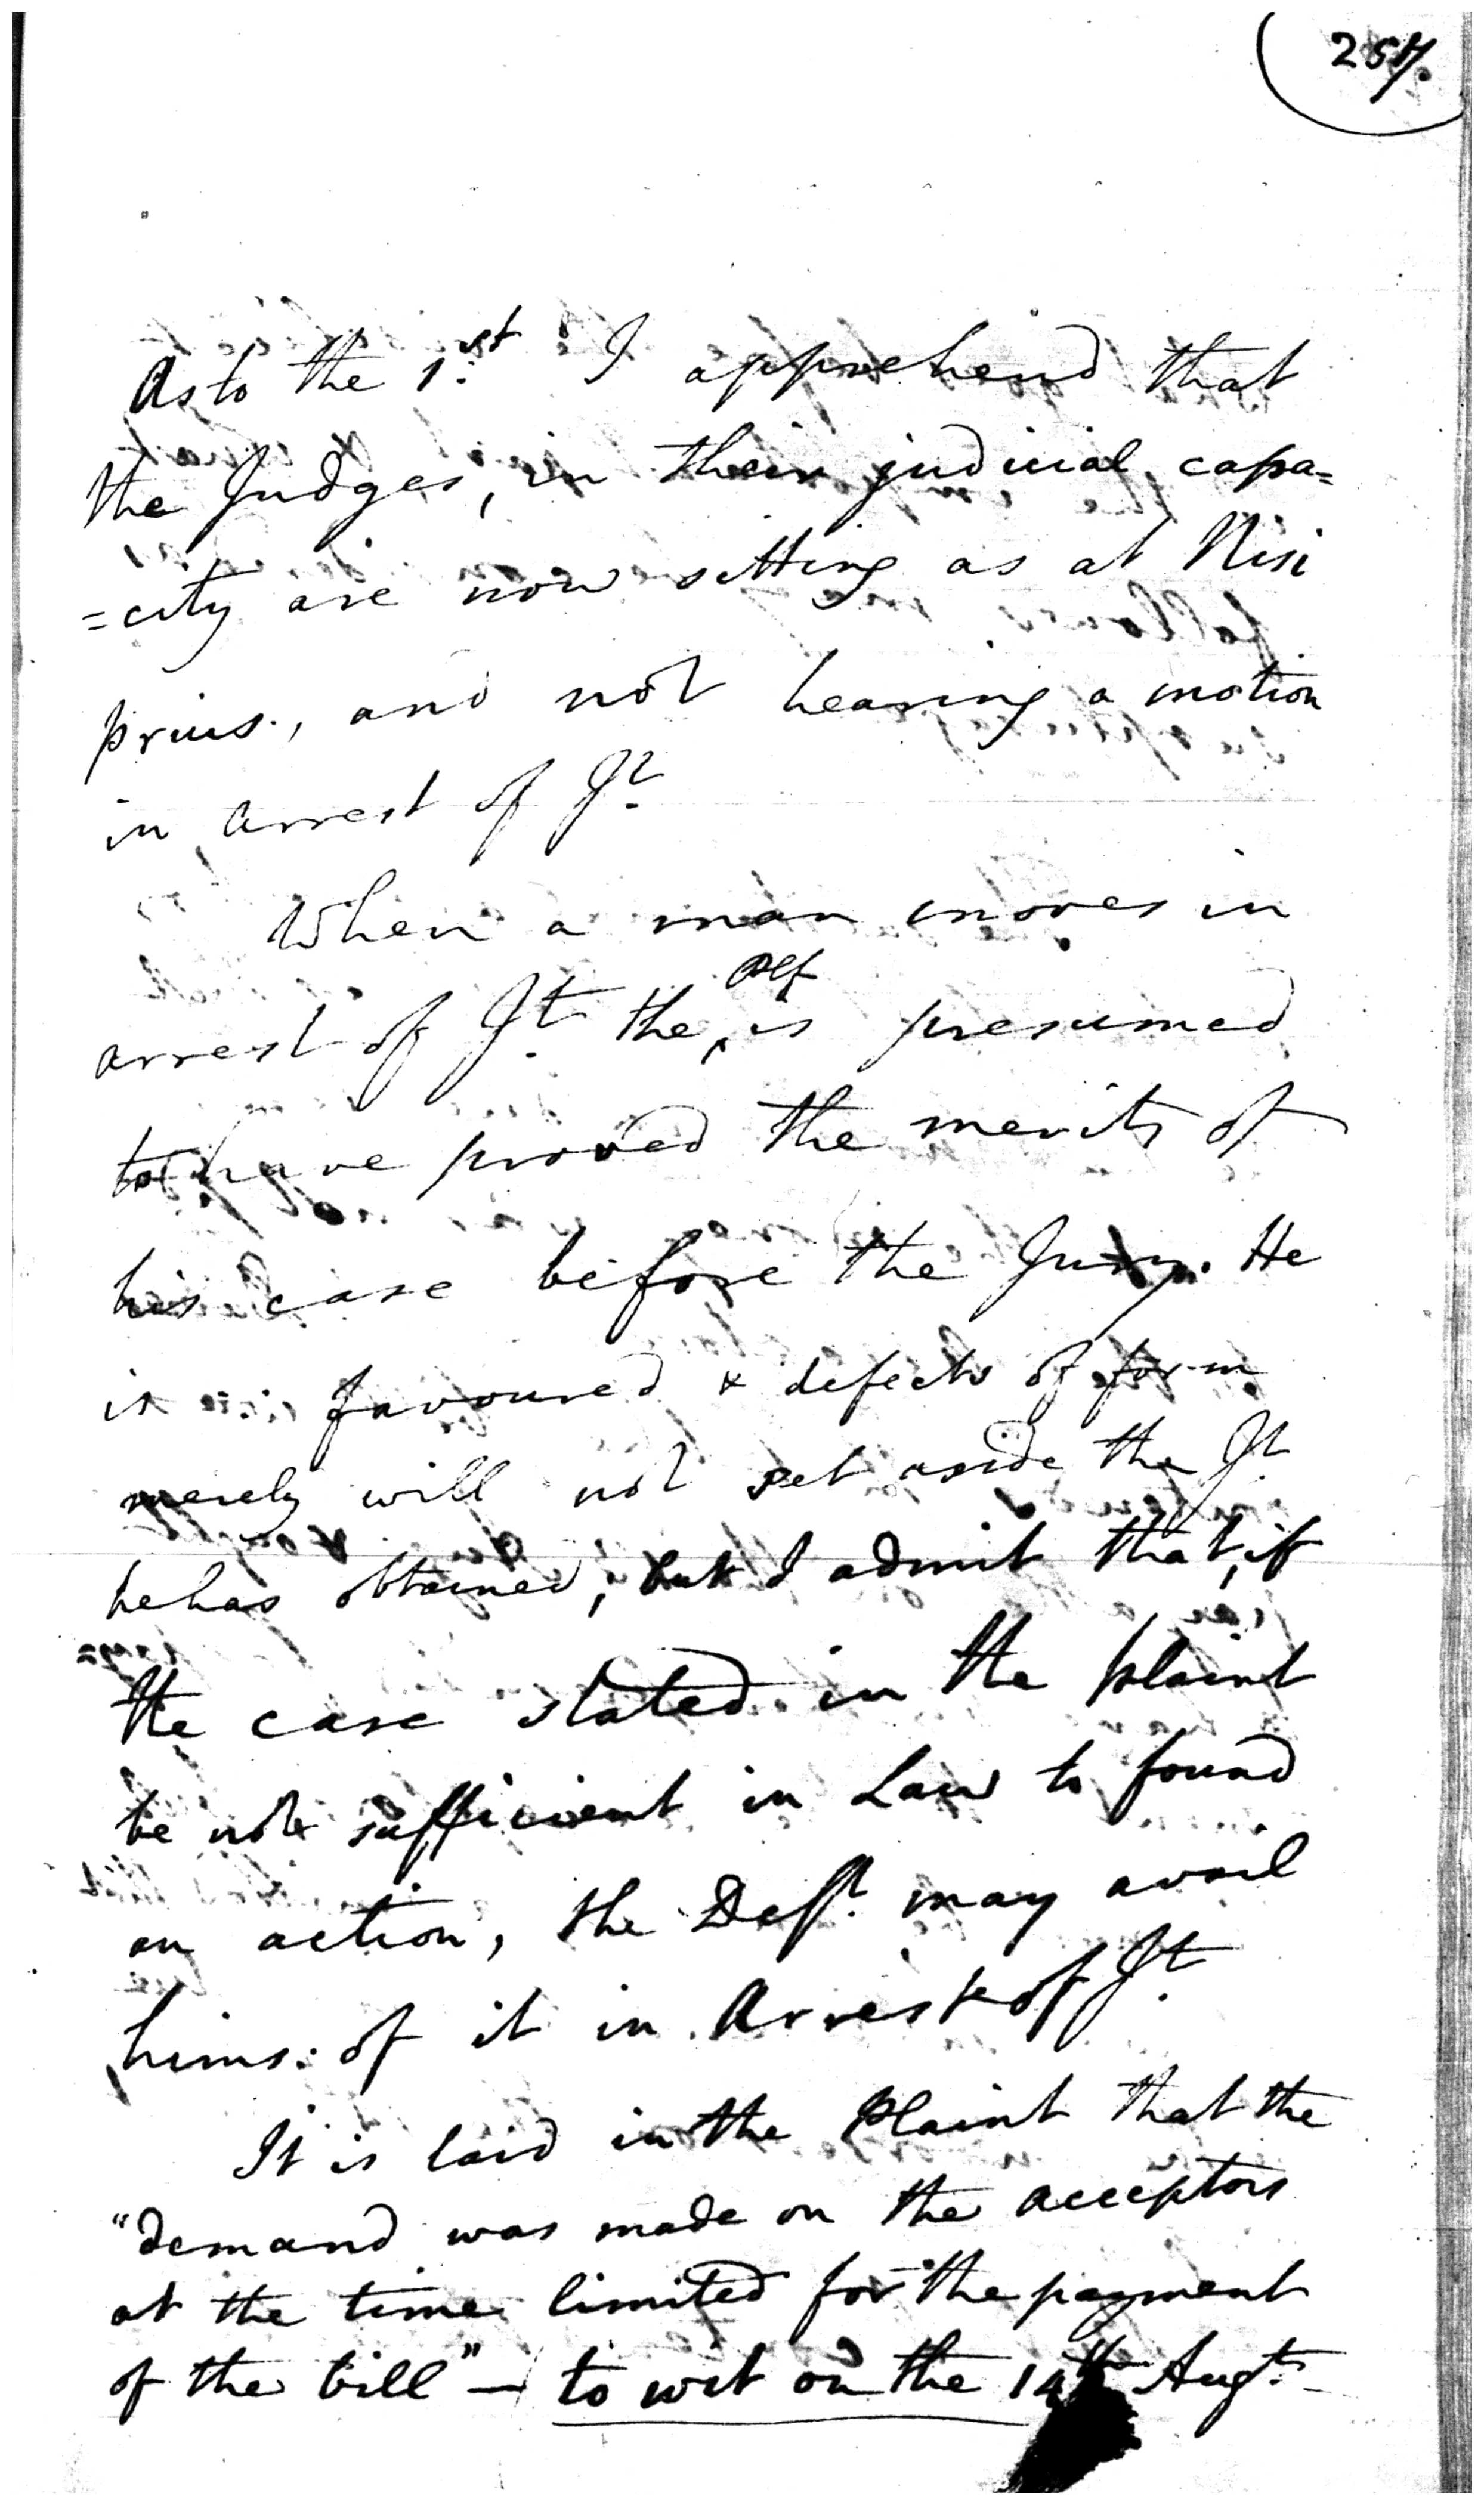 257.
As to the 1st I apprehend that
the Judges, in their judicial capa=
=city are now sitting as at Nisi
prius, and not hearing a motion
in arrest of Jt.
When a man moves in
arrest of Jt. the is presumed
to have proved the merits of
his case before the Jury. He
is favoured & defects of form
merely will not set aside the Jt.
he has obtained, but I admit that, if
the case stated in the plaint
be not sufficient in Law to found
an action, the Deft. may avail
hims: of it in Arrest of Jt.
It is laid in the Plaint that the
"demand was made on the acceptors
at the time limited for the payment
of the bill" — to wit on the 14th Augt.